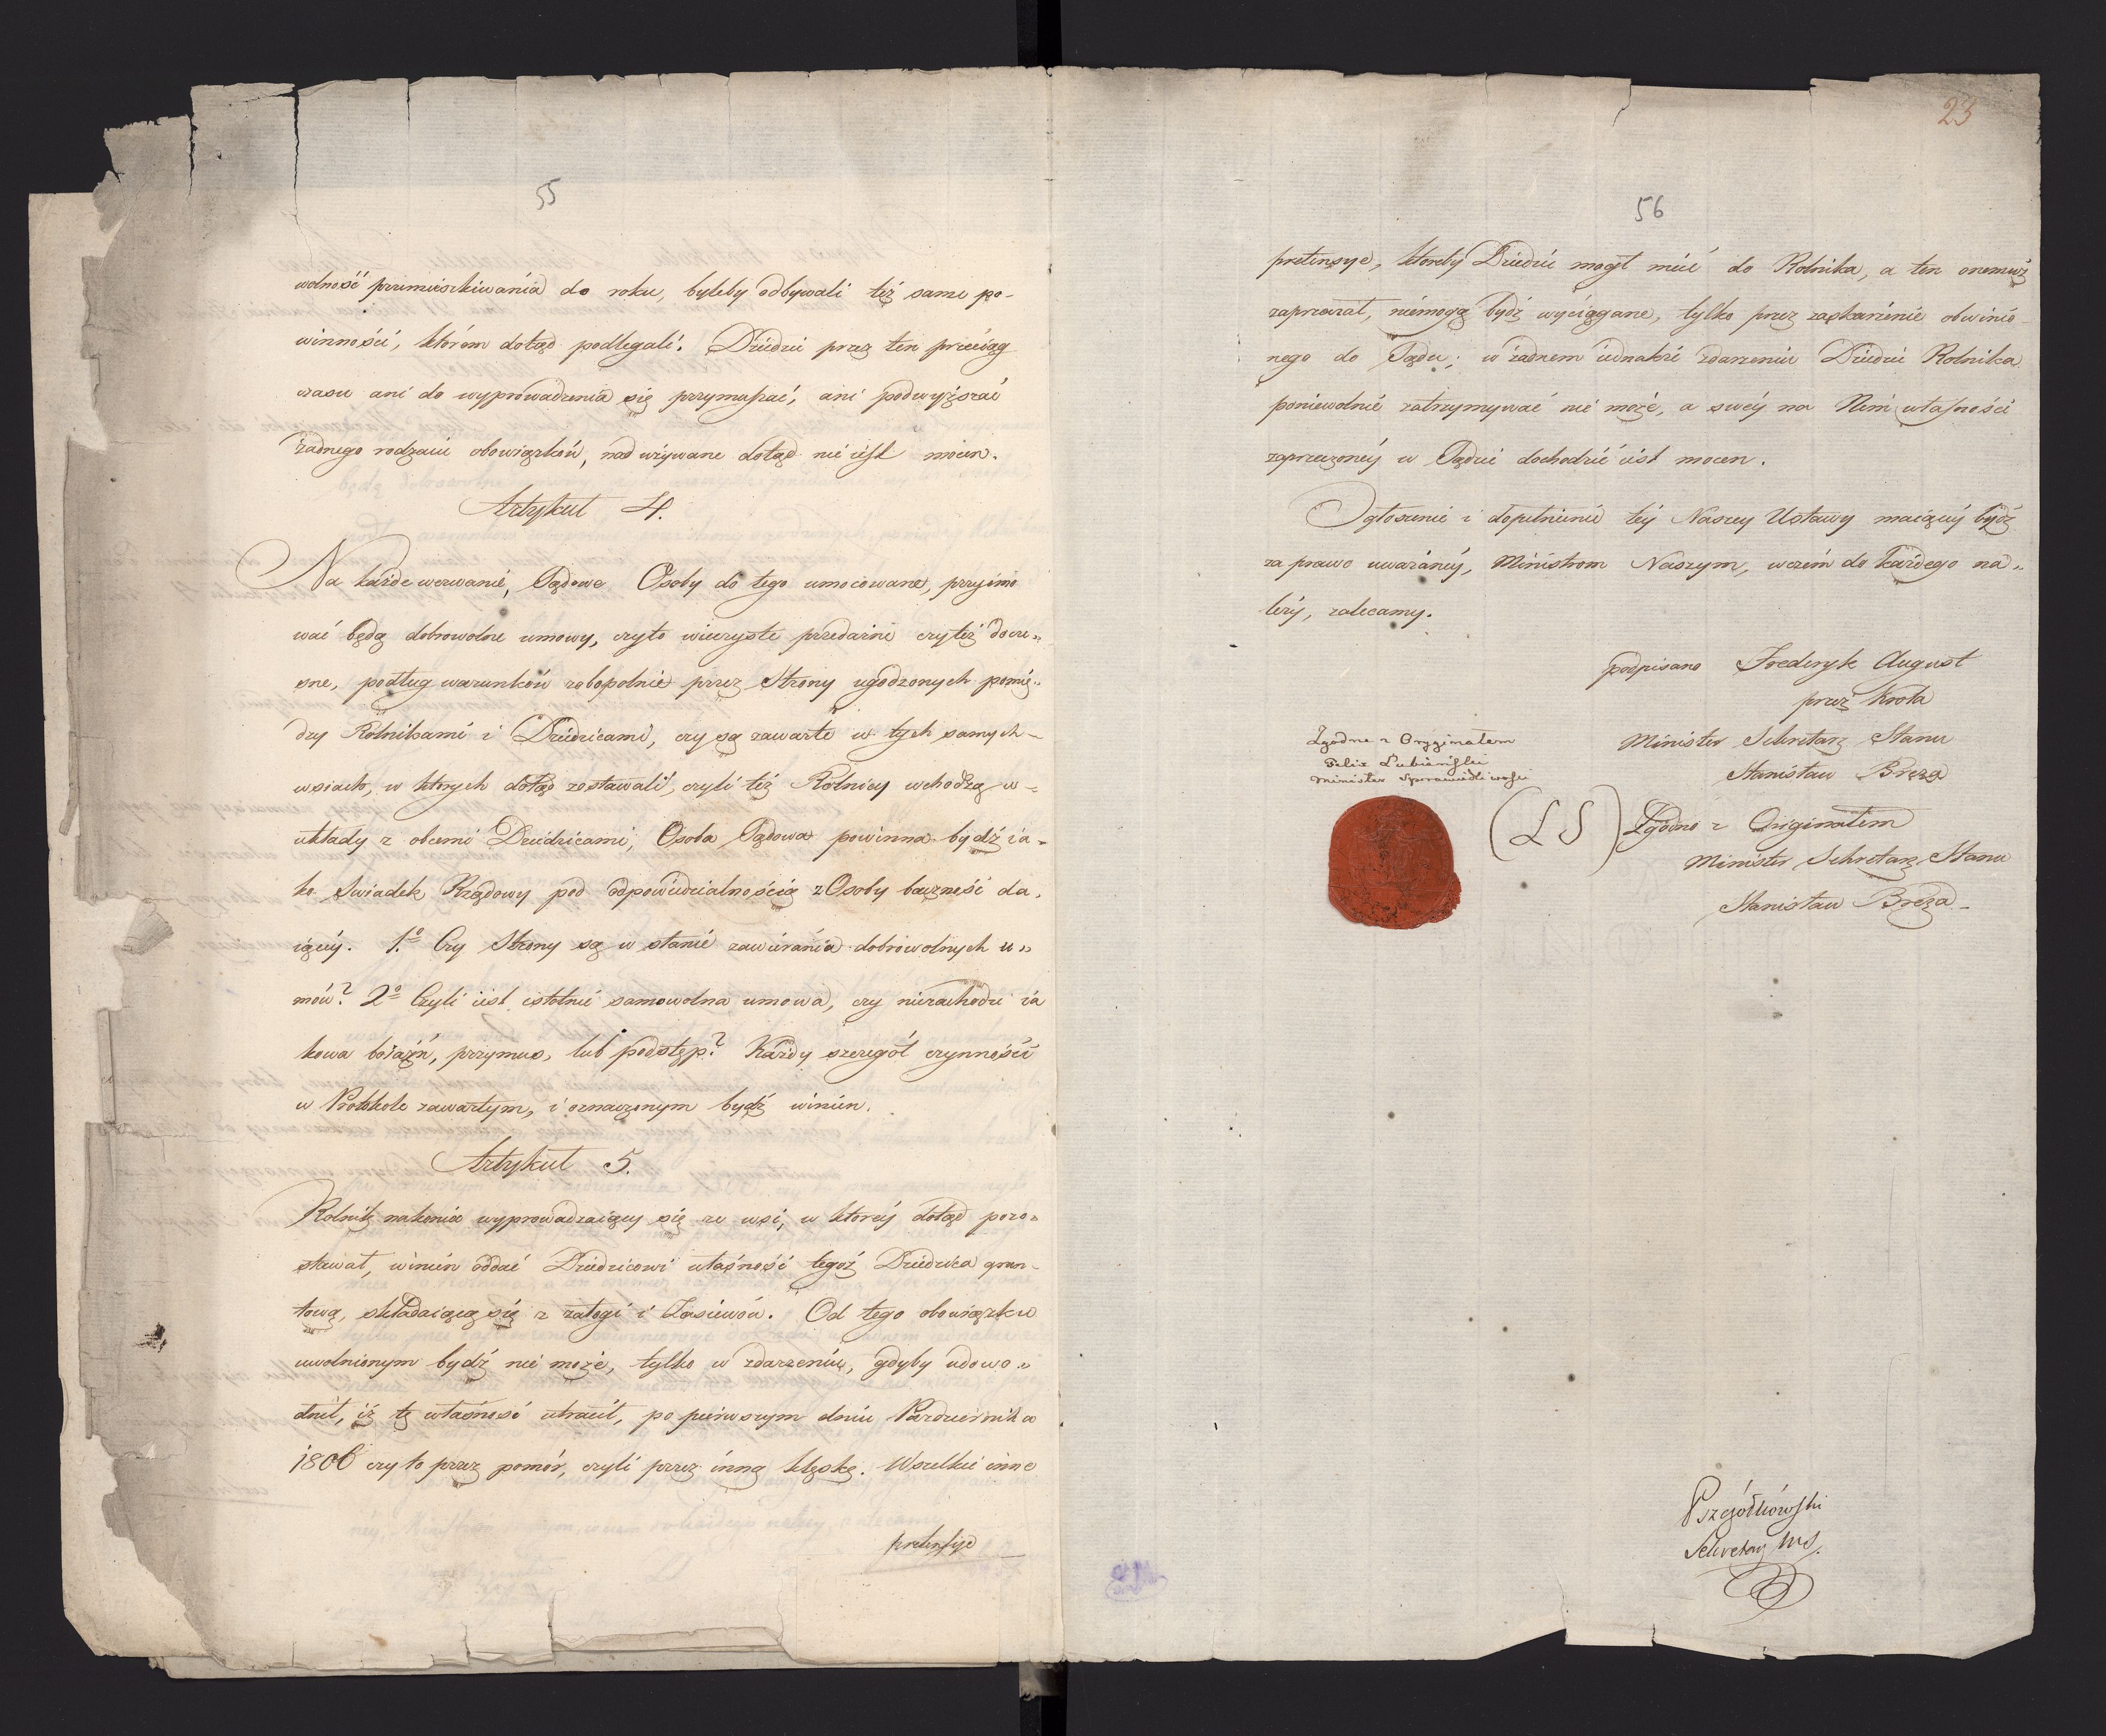 55
wolność przemieszkiwania do roku, byleby odbywali też same po-
winności, którem dotąd podlegali. Dziedzic przez ten przeciąg
czasu ani do wyprowadzenia się przymuszać, ani podwyższać
żadnego rodzaiu obowiązków, nad używane dotąd nie iest mocen.
Artykuł 4.
Na każde wezwanie, Sądowe Osoby do tego umocowane, przyimo
wać będą dobrowolne umowy, czyto wieczyste przedaże czyteż docze„
sne, podług warunków zobopolnie przez Strony ugodzonych pomię„
dzy Rolnikami i Dziedzicami, czy są zawarte w tych samych
wsiach, w których dotąd zostawali, czyli też Rolnicy wchodzą w
układy z obcemi Dziedzicami, Osoba Sądowa powinna bydź ia-
ko Swiadek Rządowy pod odpowiedzialnością z Osoby baczność da,
iący. 1.º Czy Strony są w stanie zawierania dobrowolnych u„
mów? 2º Czyli iest istotnie samowolna umowa, czy niezachodzi ia
kowa boiaźń, przymus, lub podstęp? Każdy szczegół czynności
w Protokole zawartym, i oznaczonym bydź winien.
Artykuł 5.
Rolnik nakoniec wyprowadzaiący się ze wsi, w któréy dotąd pozo„
stawał, winien oddać Dziedzicowi własność tegoż Dziedzica grun-
tową, składaiącą się z załogi i Zasiewów. Od tego obowiązku
uwolnionym bydź nie może, tylko w zdarzeniu, gdyby udowo„
dnił, iż tę własność utracił, po pierwszym dniu Października
1806 czy to przez pomór, czyli przez inną klęskę. Wszelkie inne
pretensye
23
56
pretensye, któreby Dziedzic mógł mieć do Rolnika, a ten onemuż
zaprzeczał, niemogą bydź wyciągane, tylko przez zaskarżenie obwinio-
nego do Sądu; w żadnem iednakże zdarzeniu Dziedzic Rolnika
poniewolnie zatrzymywać nie może, a swéy na Nim własności
zaprzeczonéy w Sądzie dochodzić iest mocen.
Ogłoszenie i dopełnienie téy Naszey Ustawy maiącéy bydź
za prawo uważanéy, Ministrom Naszym, wczém do każdego na„
leży, zalecamy.
podpisano Frederyk August
przez Króla
Minister Sekretarz Stanu
Stanisław Breza
Zgodno z Oryginałem
Felix Lubieński
Minister Sprawiedliwości
(LS) Zgodno z Originałem
Minister Sekretarz Stanu
Stanisław Breza
Pszczółkowski
Sekretarz MS.